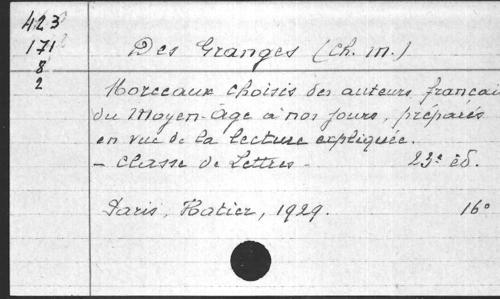 423
171
8
2
Des Granges (Ch. M.)
Morceaux choisis des auteurs françai
du Moyen-Âge à nos jours, préparés
en vue de la lecture expliquée.
- Classe de Lettres - 23e éd.
Paris, Hatier, 1929. 16°